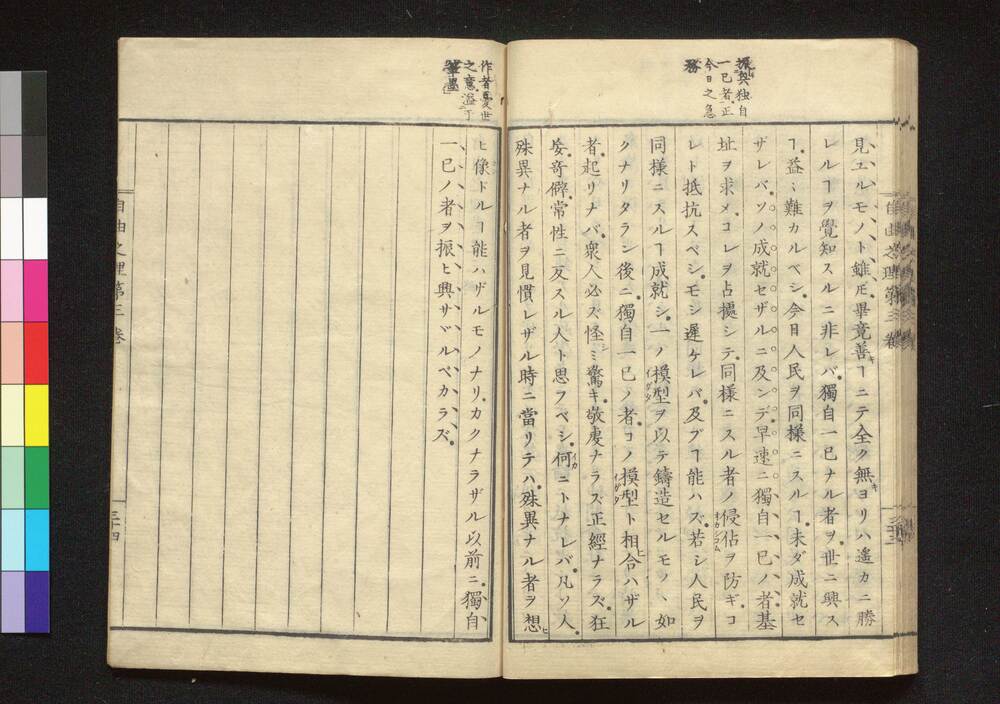 振興独自
一己者正
今日之急
務
見ユルモノト雖𪜈畢竟善キヿニテ全ク無キヨリハ遙カニ勝
レルヿヲ覺知スルニ非レバ獨自一己ナル者ヲ世ニ興ス
ヿ益〻難カルベシ今日人民ヲ同樣ニスルヿ未ダ成就セ
ザレバソノ成就セザルニ及ンデ早速ニ獨自一己ノ者基
址ヲ求メコレヲ占據シテ同樣ニスル者ノ侵佔ヲ防ギコ
レト抵抗スベシモシ遲ケレバ及ブヿ能ハズ若シ人民ヲ
同樣ニスルヿ成就シ一ノ模型ヲ以テ鑄造セルモノヽ如
クナリタラン後ニ獨自一己ノ者コノ模型ト相合ハザル
者起リナバ衆人必ズ怪シミ驚キ敬虔ナラズ正經ナラズ狂
妄奇僻常性ニ反スル人ト思フベシ何ニトナレバ凡ソ人
殊異ナル者ヲ見慣レザル時ニ當リテハ殊異ナル者ヲ想
自由之理第三卷
作者憂世
之意溢于
筆墨
ヒ像ドルヿ能ハザルモノナリカクナラザル以前ニ獨自
一己ノ者ヲ振ヒ興サヾルベカラズ
自由之理第三卷
三十四